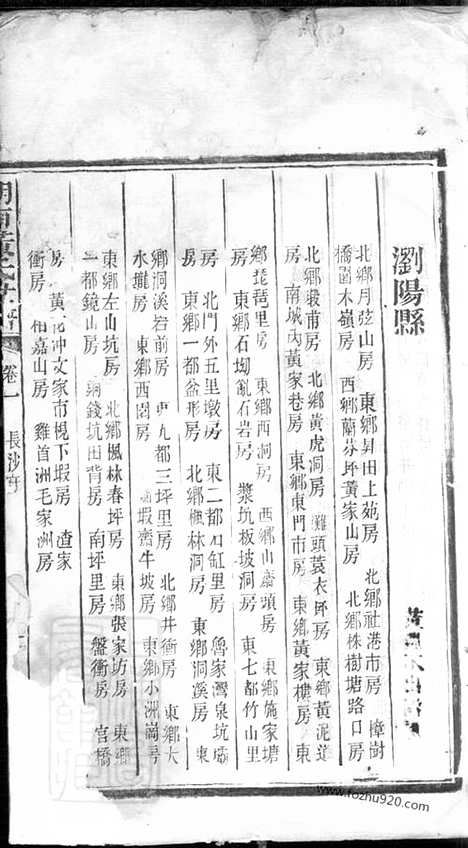 瀏陽縣
北鄉月弦山房　東鄉昇田上苑房　北鄉社港市房　樟樹
橋園木嶺房　西鄉蘭芬坪黃家山房　北鄉株樹塘路口房
北鄉暇甫房　北鄉黃虎洞房　灘頭蓑衣坪房　東鄉黃泥道
房　南城內黃家巷房　東鄉東門市房　東鄉黃家樓房　東
鄉琵琶里房　東鄉西洞房　西鄉山廟頭房　東鄉施家塘
房　東鄉石坳亂石岩房　漿坑板坡洞房　東七都竹山里
房　北門外五里墩房　東二都缸里房　魯家灣泉坑壩
房　東鄉一都盆形房　北鄉楓林洞房　東鄉洞溪房　東
鄉洞溪岩前房　九都三坪里房　北鄉井衝房　東鄉大
水壠房　東鄉西園房　蝦齋牛坡房　東鄉小洲崗房
東鄉左山坑房　北鄉楓林春坪房　東鄉張家坊房　東鄉
一都鏡山房　銅錢坑田背房　南坪里房　盤衝房　官橋
房　黃花冲文家市楓下瑕房　渣家
衝房　相嘉山房　雞首洲毛家洲房
卷一　長沙府
www.fozhu920.com